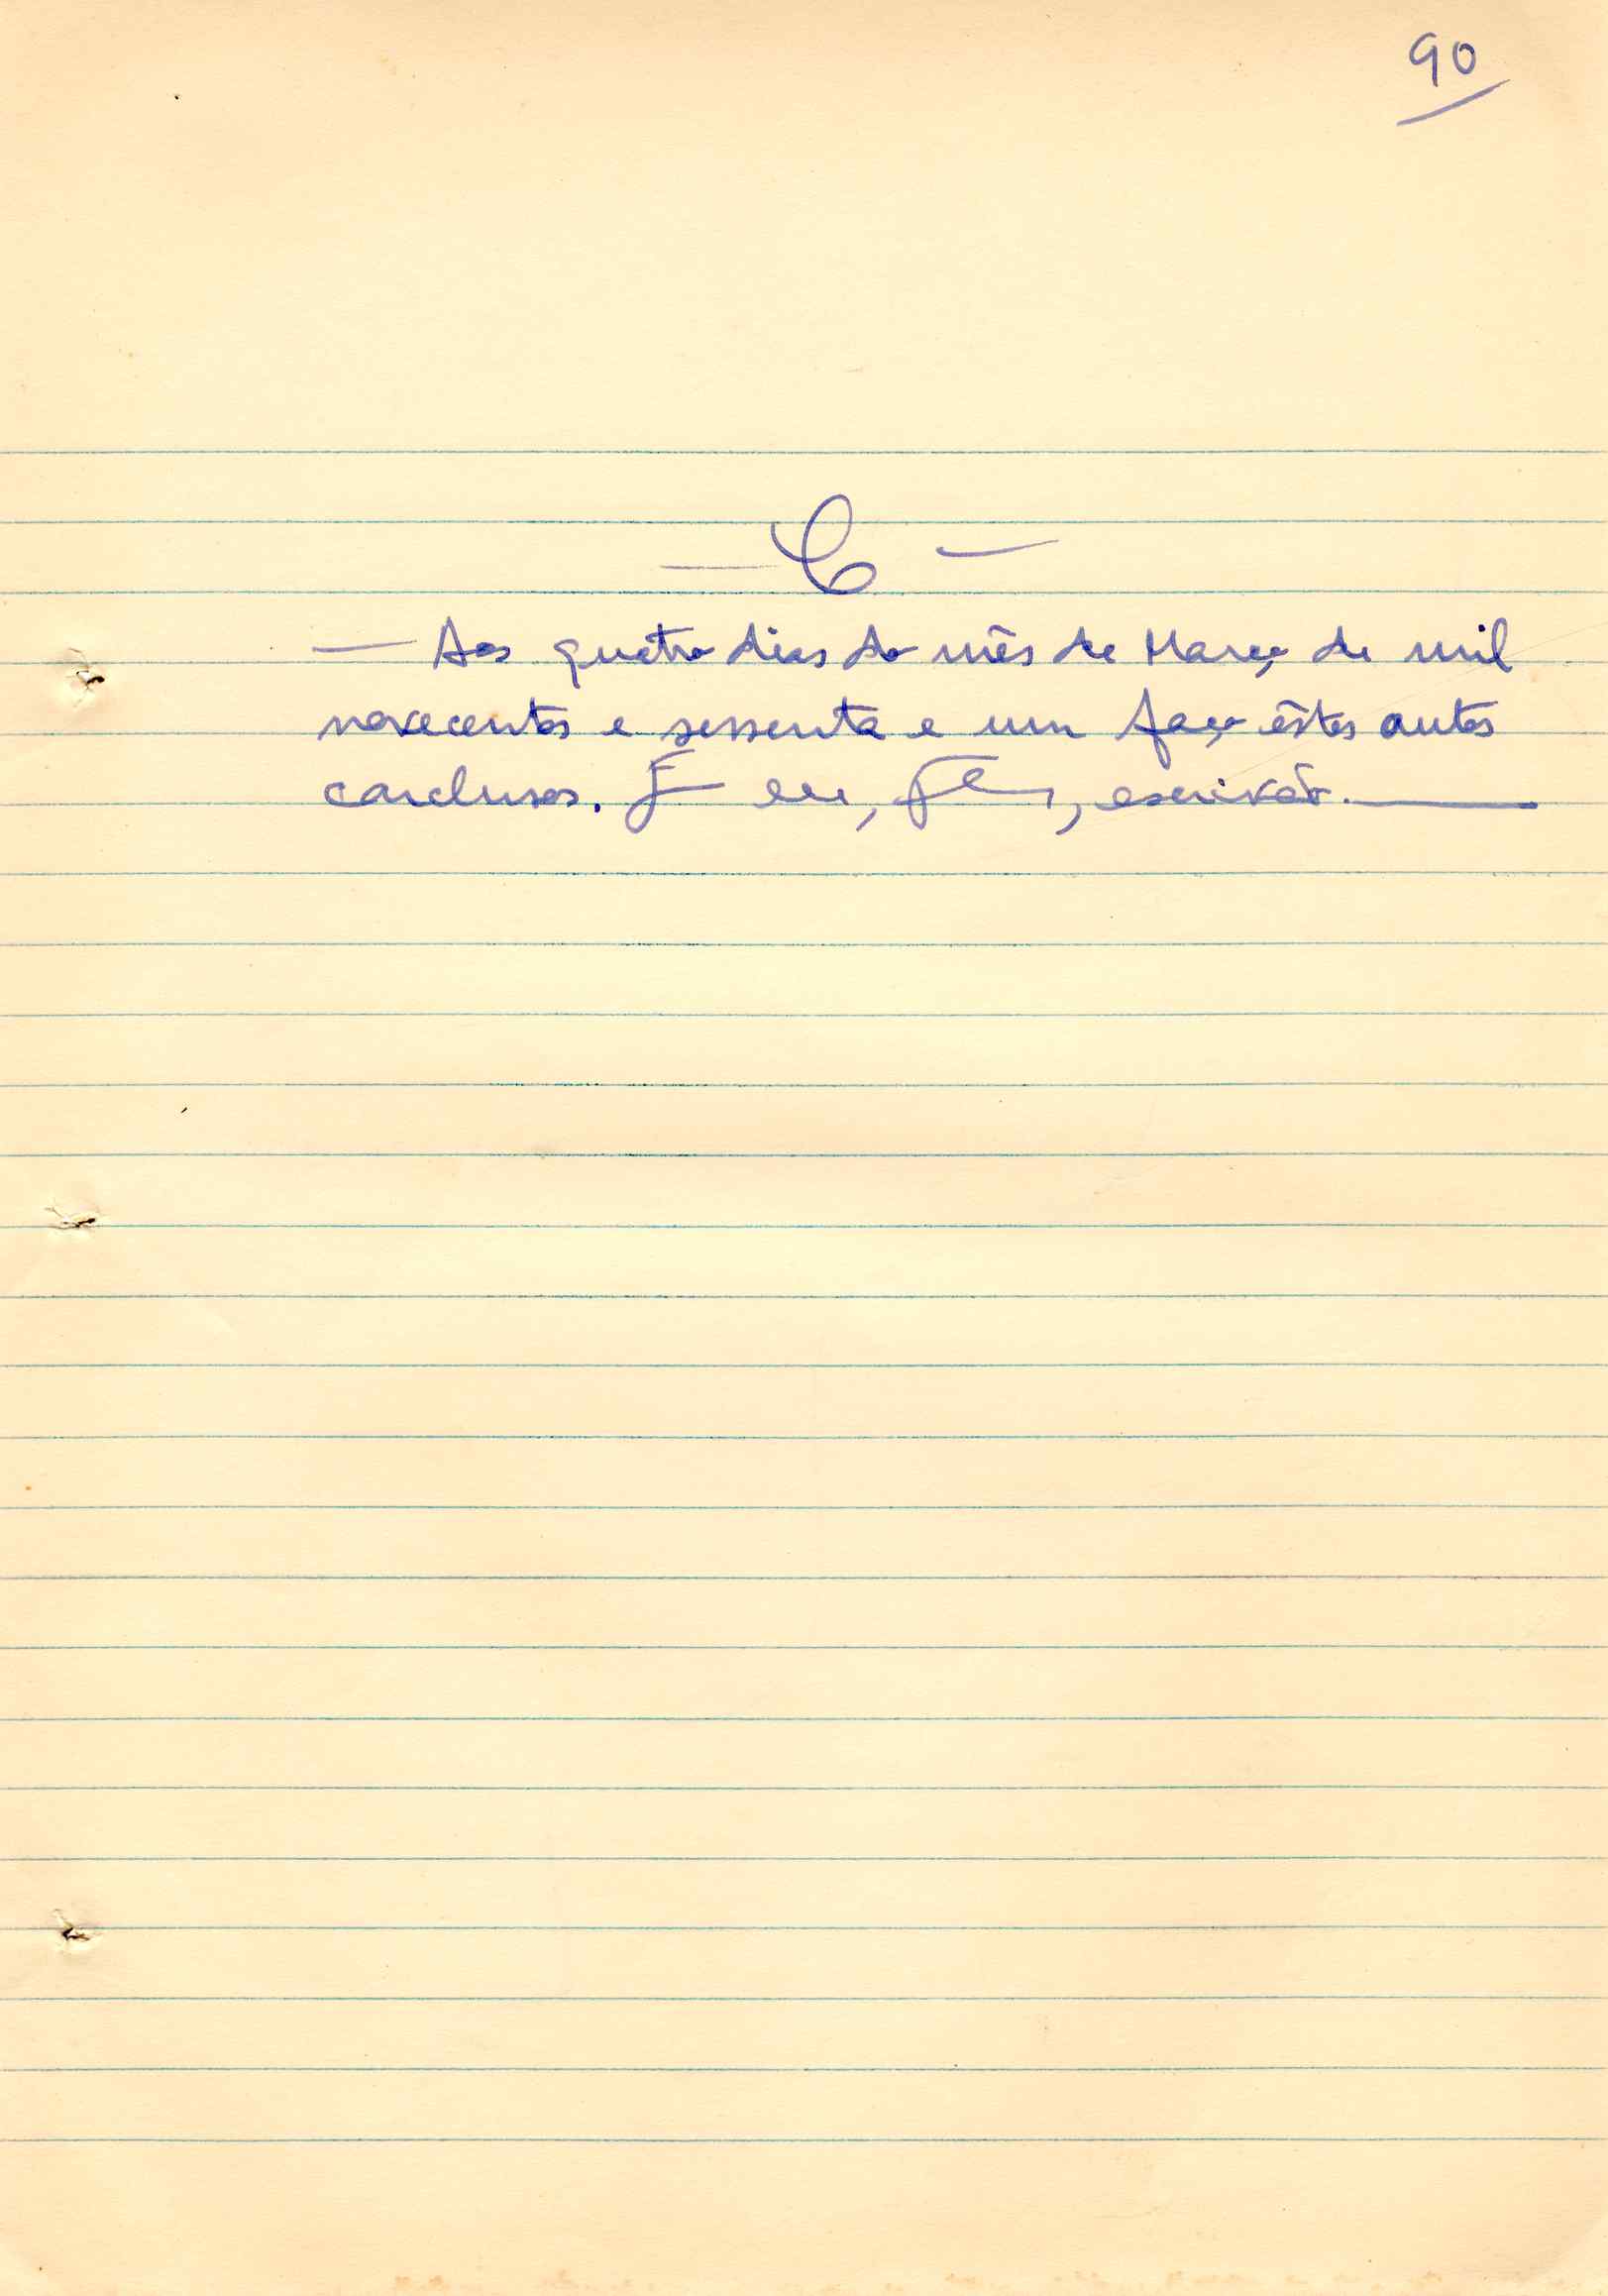 90
— C —
— Aos quatro dias do mês de Março de mil
novecentos e sessenta e um faço êstes autos
conclusos. E eu, , escrivão.